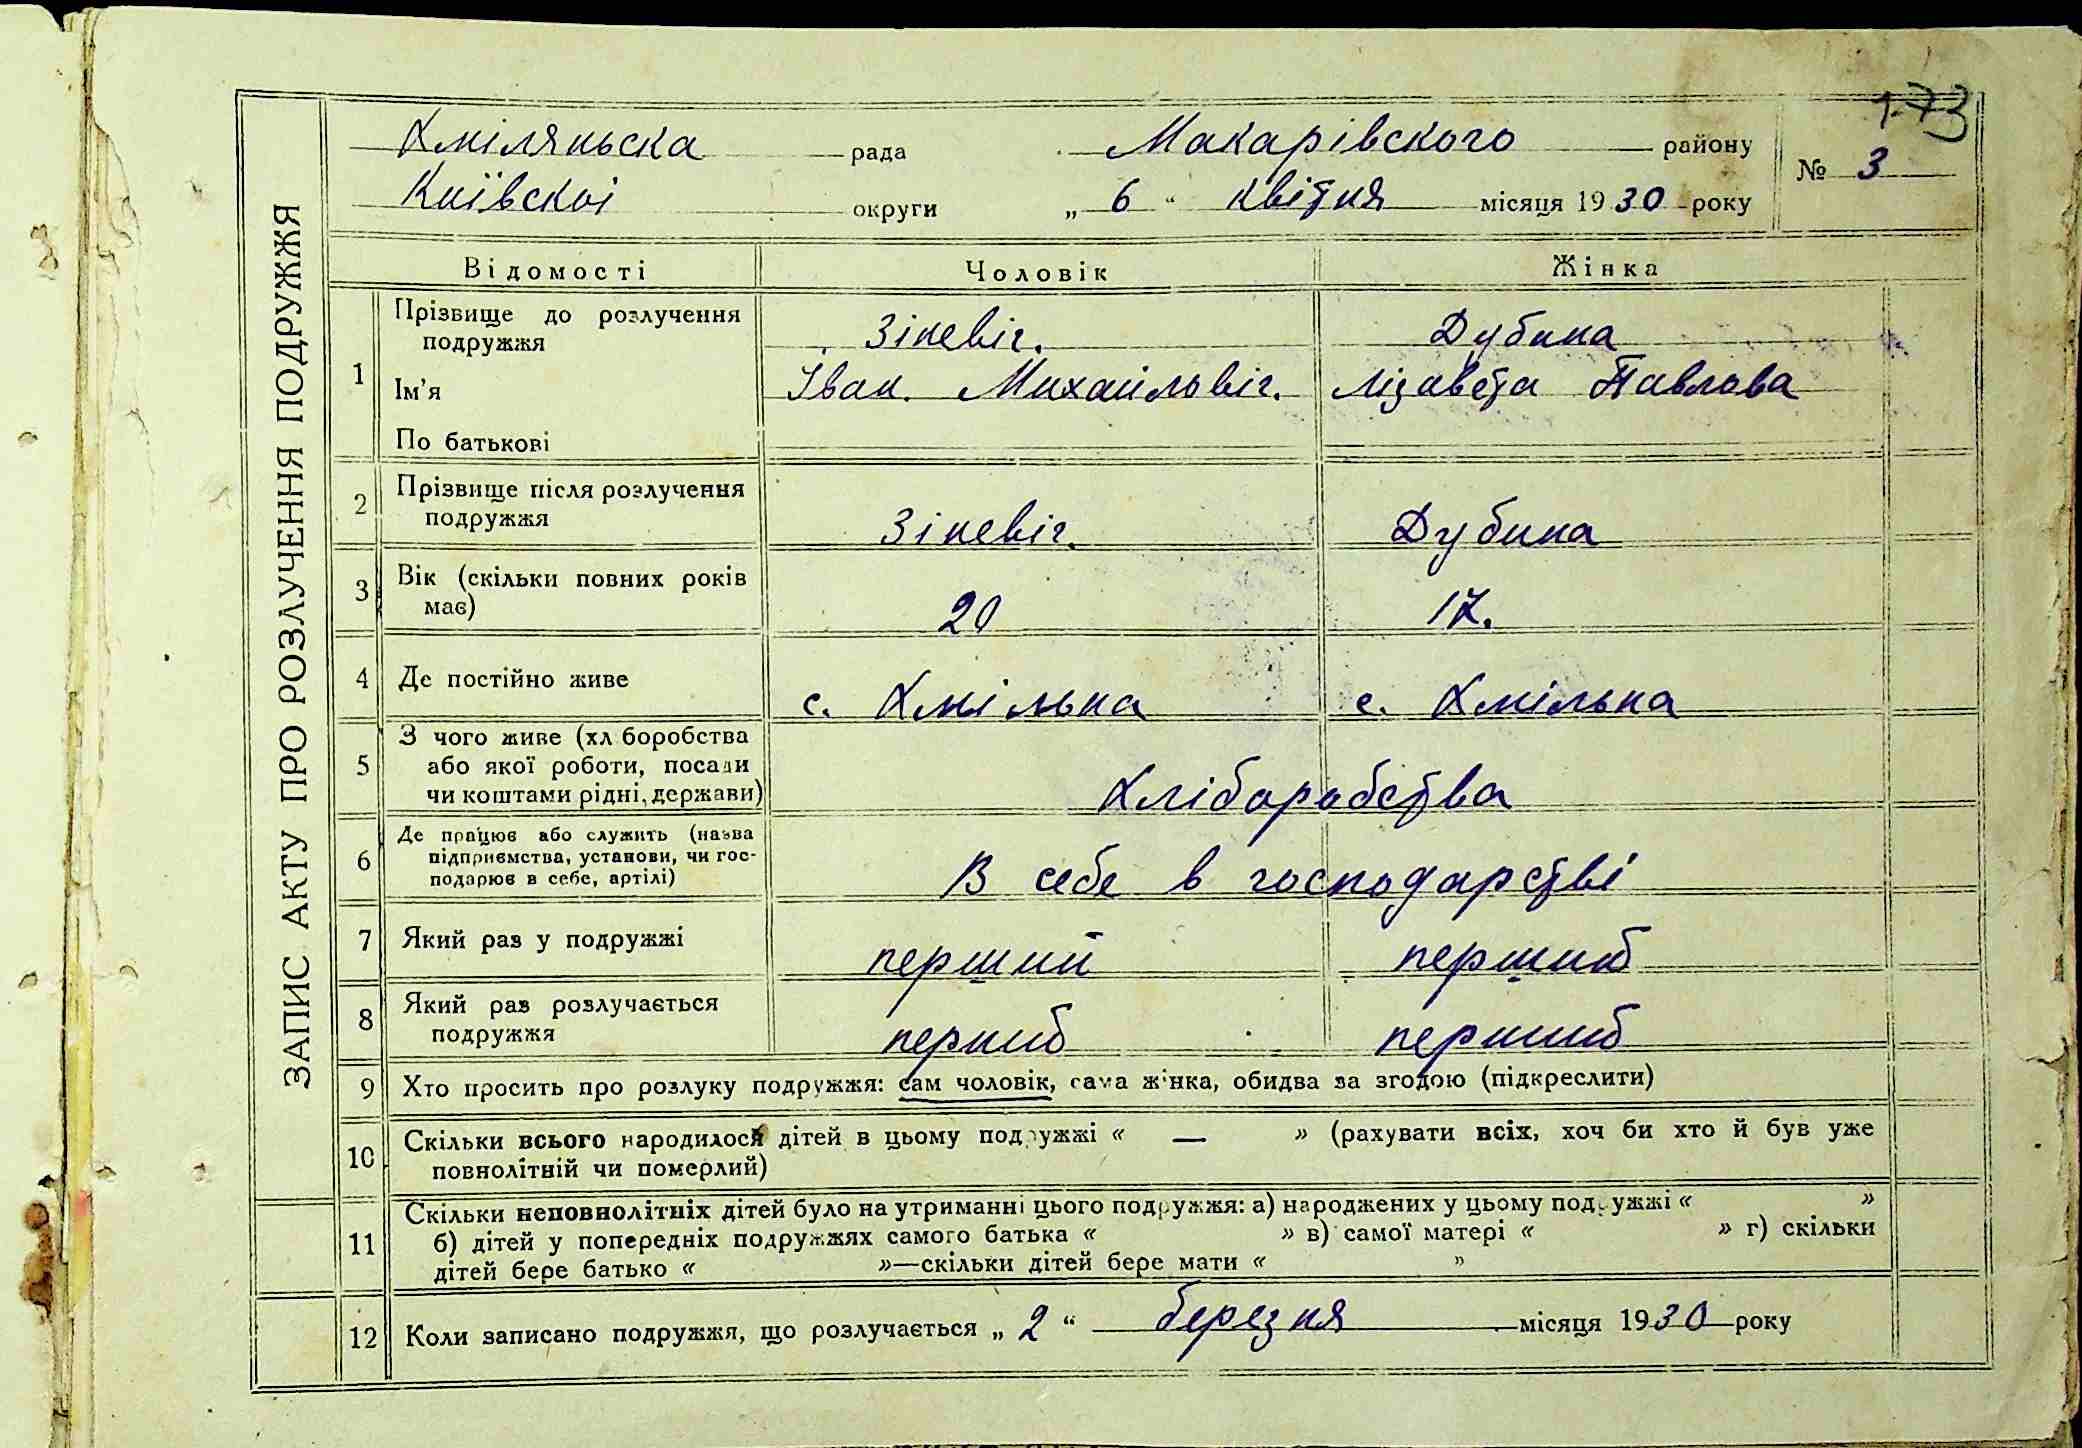 173
Хміляньска рада Макарівского району
№ 3
Київскоі округи „ 6 “ квітня місяця 1930 року
ЗАПИС АКТУ ПРО РОЗЛУЧЕННЯ ПОДРУЖЖЯ
Відомості Чоловік Жінка
1 Прізвище до розлучення подружжя Зіневіч. Дубина
Ім’я Іван. Михайльвіч. Лізавета Павлова
По батькові
2 Прізвище після розлучення
подружжя Зіневіч. Дубина
3 Вік (скільки повних років
має) 20 17.
4 Де постійно живе с. Хмільна с. Хмільна
5 З чого живе (хл боробства
або якої роботи, посади
чи коштами рідні, держави) Хліборобства
6 Де працює або служить (назва
підприємства, установи, чи гос-
подарює в себе, артілі) В себе в господарстві
7 Який раз у подружжі перший первий
8 Який раз розлучається
подружжя первий первий
9 Хто просить про розлуку подружжя: сам чоловік, сама жінка, обидва за згодою (підкреслити)
10 Скільки всього народилося дітей в цьому подружжі « — » (рахувати всіх, хоч би хто й був уже
повнолітній чи померлий)
11 Скільки неповнолітніх дітей було на утриманні цього подружжя: а) народжених у цьому подружжі « »
б) дітей у попередніх подружжях самого батька « » в) самої матері « » г) скільки
дітей бере батько « »—скільки дітей бере мати « »
12 Коли записано подружжя, що розлучається „ 2 “ березня місяця 1930 року